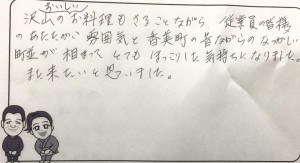 おいしい
沢山のお料理もさることながら 従業員の皆様
のあたたかい雰囲気と香美町の昔ながらのなつかしい
町並が相まって とてもほっこりした気持ちになりました。
また来たいと思いました。